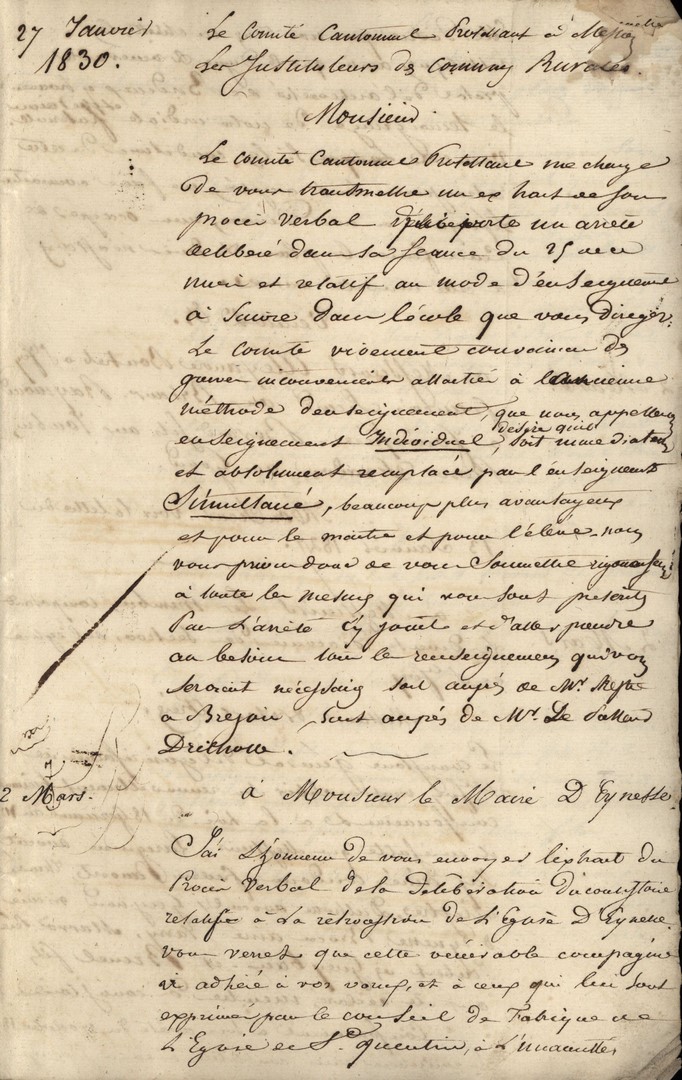 27 Janvier
1830.
Le Comité Cantonnal Protestant à Mess
Les Instituteurs des Communes Rurales.
Monsieur
Le comité Cantonnal Protestant me charge
de vous transmettre un extrait de son
procès verbal un arrêté
délibéré dans sa séance du 25
mois et relatif au mode d'enseignement
à suivre dans l'école que vous dirigez.
Le comité vivement convaincu des
graves inconvenients attachés à l'ancienne
méthode d'enseignement, que nous appellons
enseignement Individuel, desire qu'il soit immediatem
et absolument remplacé par l'enseignement
Simultané, beaucoup plus avantageux
et pour le maitre et pour l'élève. nous
vous prions donc de vous soumettre rigoureusem
à toutes les mesures qui vous sont prescrites
Par L'arrêté cy joint et d'aller prendre
au besoin tous les renseignemens qui vous
seroient nécessaires soit auprès de Mr.
a soit auprès de Mr. Le
2 Mars.
à Monsieur le Maire D'Eynesse.
J'ai L'honneur de vous envoyer l'extrait du
Procès Verbal de la délibération du consistoire
relative à La rétrocession de l'Eglise D'Eynesse.
vous verrez que cette vénérable compagnie
a adhéré à vos voeux, et à ceux qui lui sont
exprimés par le conseil de Fabrique de
L'Eglise de St. Quentin, à L'unanimité